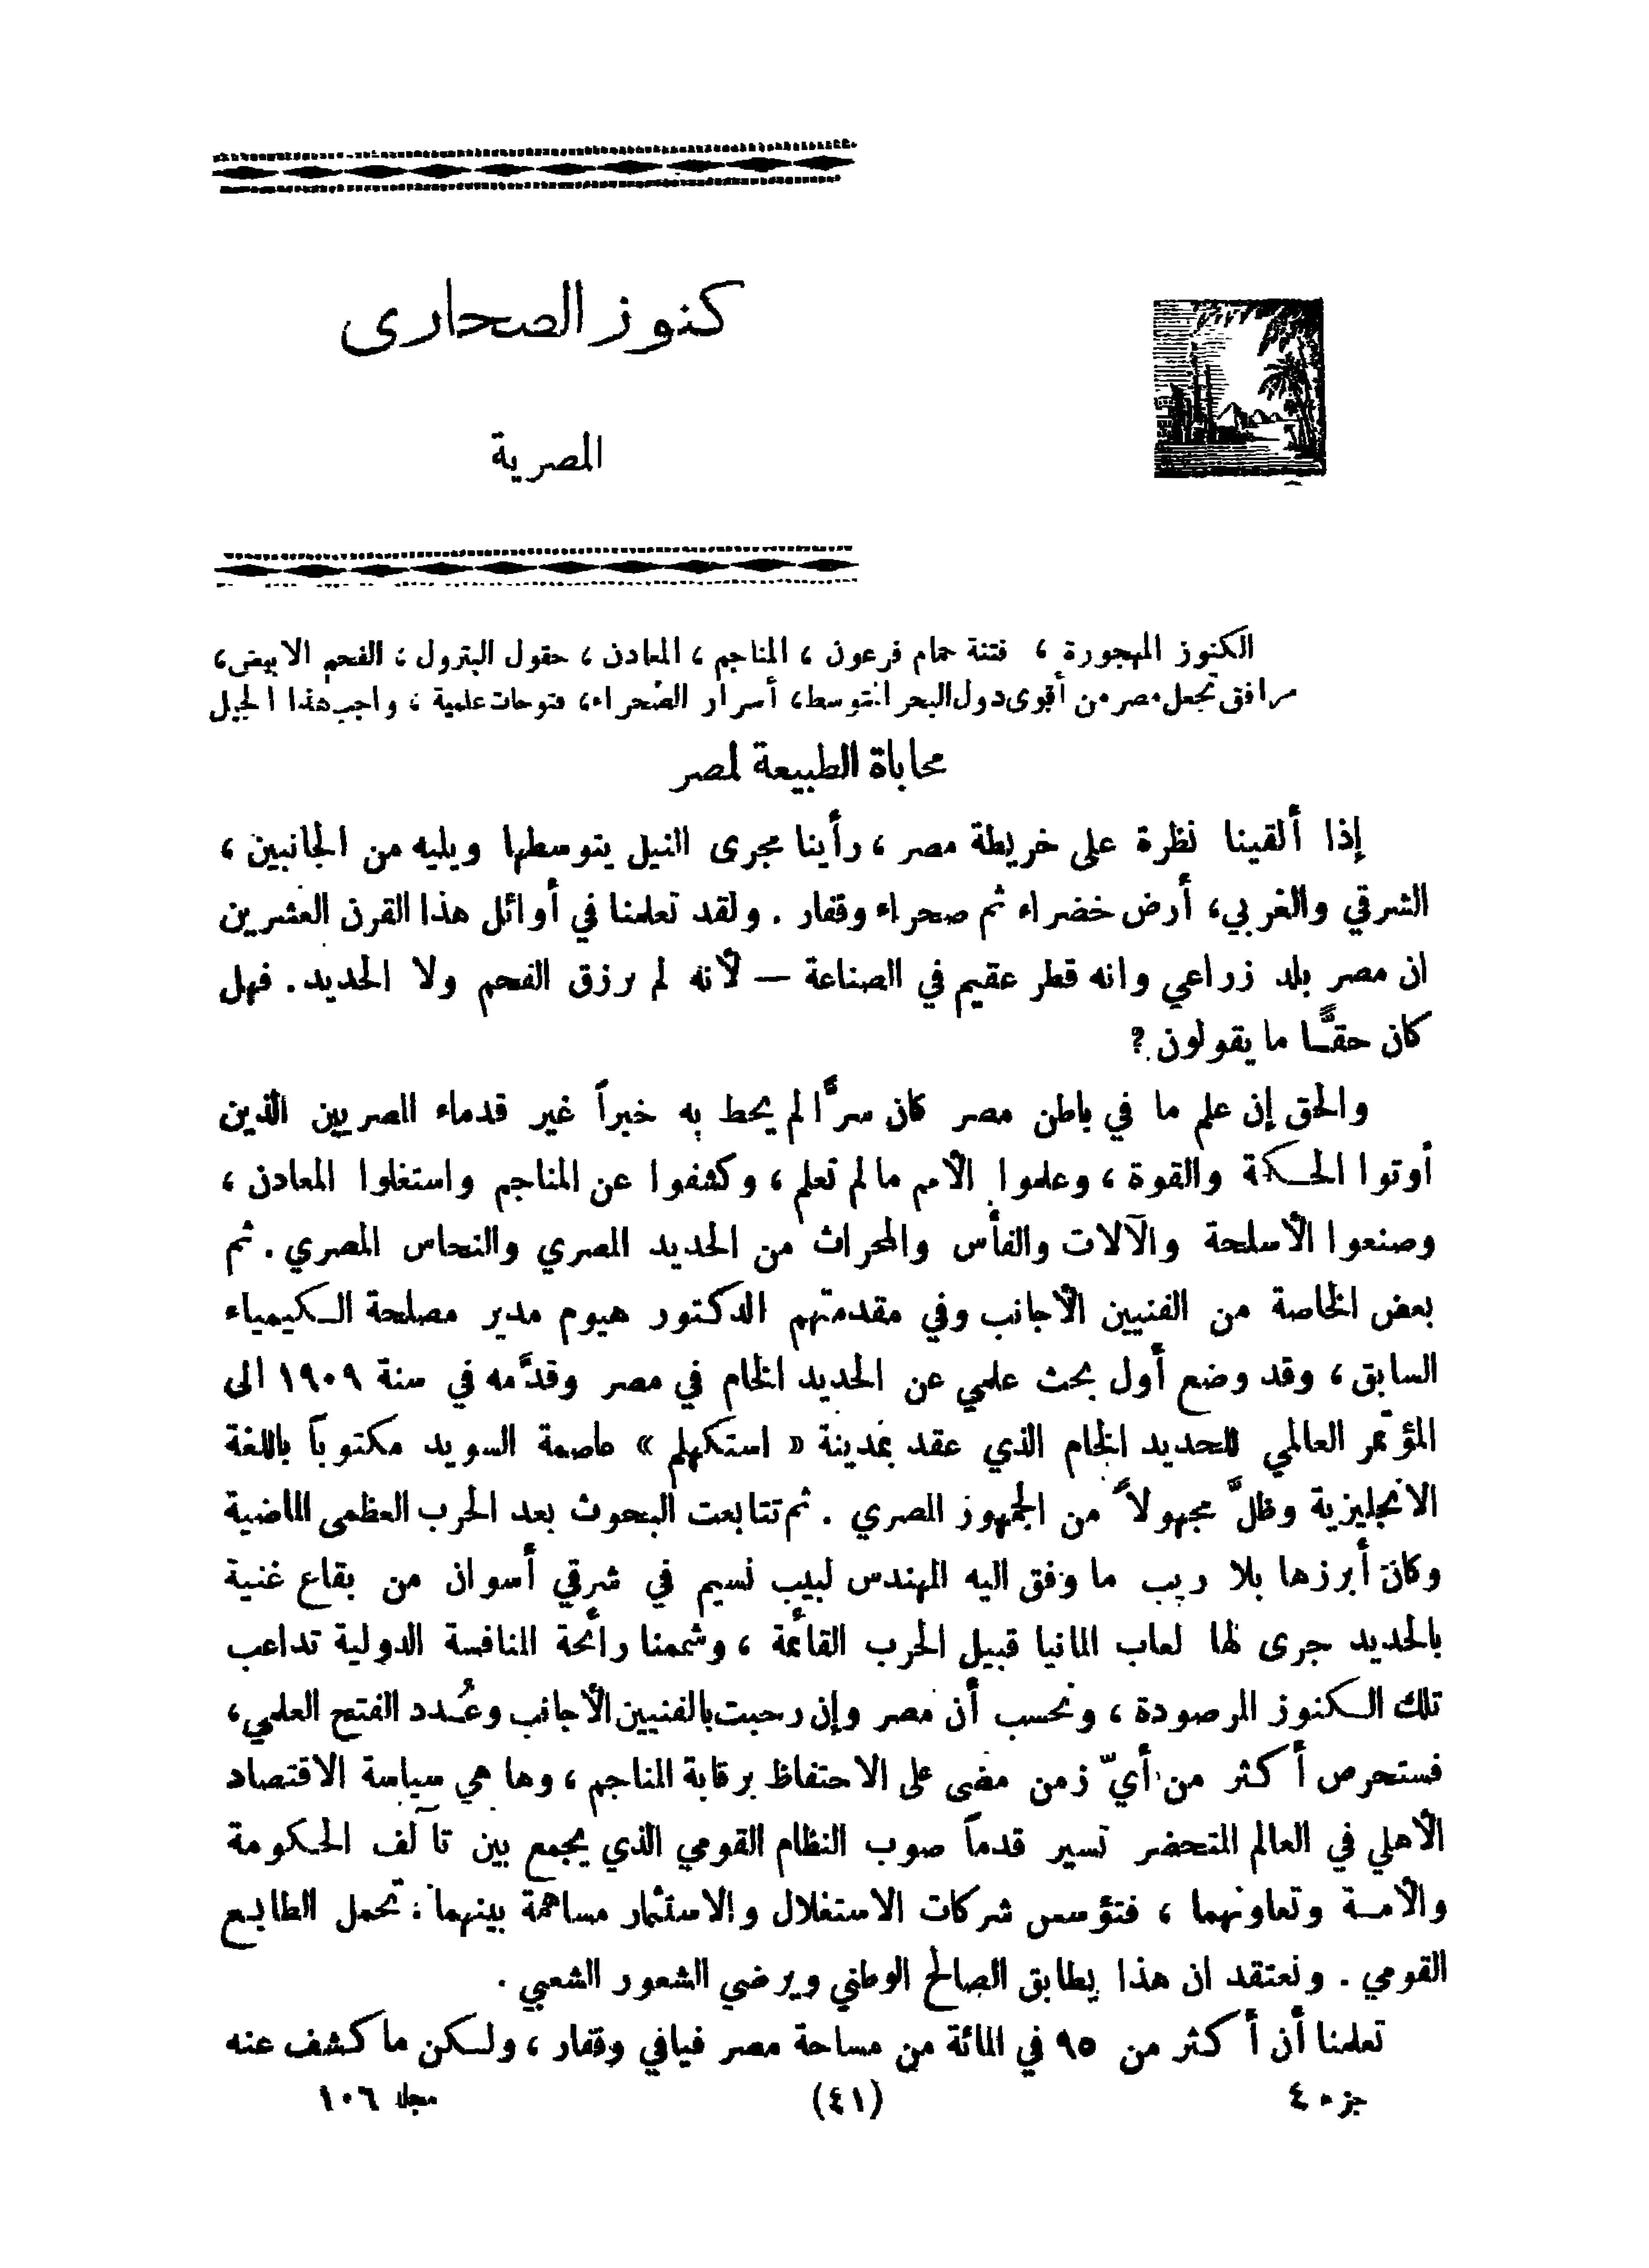 كنوز الصحارى
المصرية
الكنوز المهجورة ، فتنة حمام فرعون ، المناجم ، المعادن ، حقول البترول ، الفحم الابيض ،
مرافق تجعل مصر من أقوى دول البحر المتوسط ، أسرار الصحراء ، فتوحات علمية ، واجب هذا الجيل
محاباة الطبيعة لمصر
إذا ألقينا نظرة على خريطة مصر ، رأينا مجرى النيل يتوسطها ويليه من الجانبين ،
الشرقي والغربي، أرض خضراء ثم صحراء وقفار . ولقد تعلمنا في أوائل هذا القرن العشرين
ان مصر بلد زراعي وانه قطر عقيم في الصناعة — لأنه لم يرزق الفحم ولا الحديد . فهل
كان حقًّا ما يقولون ؟
والحق إن علم ما في باطن مصر كان سرًّا لم يحط به خبراً غير قدماء المصريين الذين
أوتوا الحكمة والقوة ، وعلموا الأمم ما لم تعلم ، وكشفوا عن المناجم واستغلوا المعادن ،
وصنعوا الأسلحة والآلات والفأس والمحراث من الحديد المصري والنحاس المصري . ثم
بعض الخاصة من الفنيين الأجانب وفي مقدمتهم الدكتور هيوم مدير مصلحة الكيمياء
السابق ، وقد وضع أول بحث علمي عن الحديد الخام في مصر وقدَّمه في سنة ١٩٠٩ الى
المؤتمر العالمي للحديد الخام الذي عقد بمدينة « استكهلم » عاصمة السويد مكتوباً باللغة
الانجليزية وظلَّ مجهولاً من الجمهور المصري . ثم تتابعت البحوث بعد الحرب العظمى الماضية
وكان أبرزها بلا ريب ما وفق اليه المهندس لبيب نسيم في شرقي أسوان من بقاع غنية
بالحديد جرى لها لعاب المانيا قبيل الحرب القائمة ، وشممنا رائحة المنافسة الدولية تداعب
تلك الكنوز المرصودة ، ونحسب أن مصر وإن رحبت بالفنيين الأجانب وعُدد الفتح العلمي،
فستحرص أكثر من أيّ زمن مضى على الاحتفاظ برقابة المناجم ، وها هي سياسة الاقتصاد
الأهلي في العالم المتحضر تسير قدماً صوب النظام القومي الذي يجمع بين تآلف الحكومة
والأمة وتعاونهما ، فتؤسس شركات الاستغلال والاستثمار مساهمة بينهما ؛ تحمل الطابع
القومي . ونعتقد ان هذا يطابق الصالح الوطني ويرضي الشعور الشعبي .
تعلمنا أن أكثر من ٩٥ في المائة من مساحة مصر فيافي وقفار ، ولكن ما كشف عنه
جزء ٤ (٤١) مجلد ١٠٦